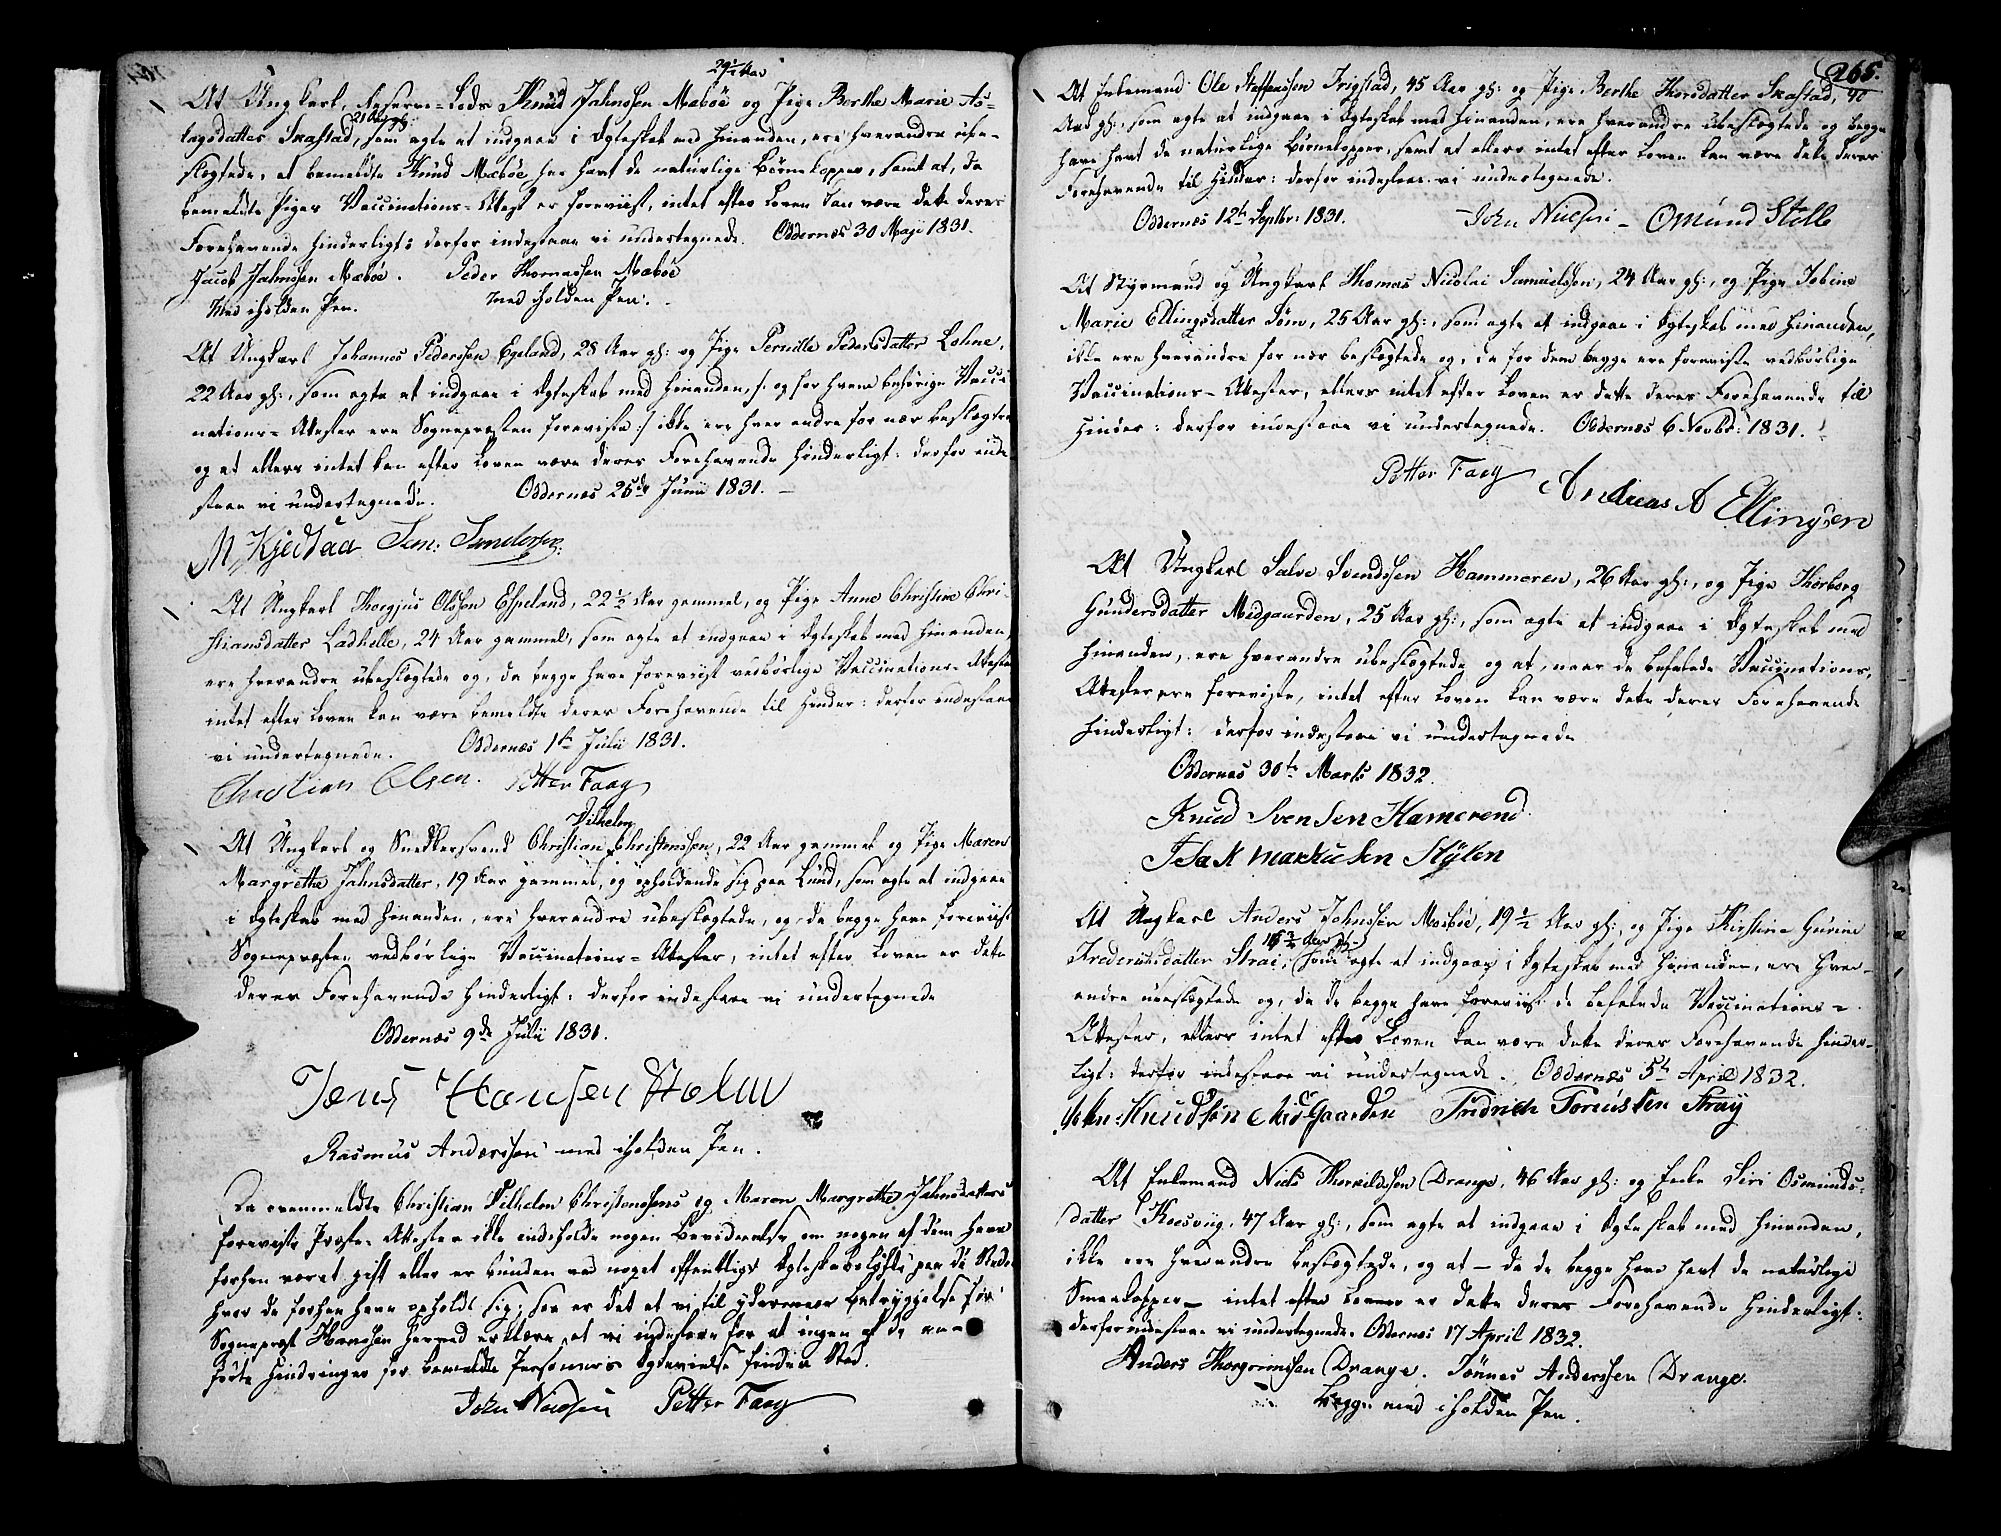 29½ Aar
At Ungkarl, Reserve-Lods Knud Jahnssen Mæbøe og Pige Berthe Marie As-
21 Aar gl:
lagsdatter Skafstad, som agte at indgaae i Ægteskab med hinanden, ere hverandre ube-
slægtede, at bemeldte Knud Mæbøe har havt de naturlige Børnekopper, samt at, da
bemeldte Piges Vaccinations-Attest er foreviist, intet efter Loven kan være dette deres
Forehavende hinderligt: derfor indestaae vi undertegnede. Oddernæs 30 Maji 1831.
Jacob Jahnssen Mæbøe. Peder Thomassen Mæbøe
Med iholden Pen. med iholden Pen.
At Ungkarl Johannes Pederssen Egeland, 28 Aar gl: og Pige Pernille Pedersdatter Lohne,
22 Aar gl:, som agte at indgaae i Ægteskab med hinanden, /: og for hvem behørige Vacci-
nations-Attester ere Sognepræsten foreviste :/ ikke ere hverandre for nær beslægtede
og at ellers intet kan efter Loven være deres Forehavende hinderligt: derfor inde-
staae vi undertegnede. Oddernæs 25de Junii 1831.
M Kjedsaa
At Ungkarl Thorgjus Olssøn Espeland, 22½ Aar gammel, og Pige Anne Christine Chri-
stiansdatter Ladhelle, 24 Aar gammel, som agte at indgaae i Ægteskab med hinanden,
ere hverandre ubeslægtede og, da begge have foreviist vedbørlige Vaccinations-Attester
intet efter Loven kan være bemeldte deres Forehavende til Hinder: derfor indestaae
vi undertegnede. Oddernæs 1ste Julii 1831.
Christian Olsen. Petter Faay
Vilhelm
At Ungkarl og Snedkersvend Christian Christenssen, 22 Aar gammel og Pige Maren
Margrethe Jahnsdatter, 19 Aar gammel, og opholdende sig paa Lund, som agte at indgaae
i Ægteskab med hinanden, ere hverandre ubeslægtede, og, da begge have foreviist
Sognepræsten vedbørlige Vaccinations-Attester, intet efter Loven er dette
deres Forehavende hinderligt: derfor indestaae vi undertegnede
Oddernæs 9de Julii 1831.
Jens Hansen Holm
Rasmus Anderssøn med iholden Pen.
Da ovenmeldte Christian Vilhelm Christenssens og Maren Margrethe Jahnsdatters
foreviste Præste-Attester ikke indeholde nogen Bevidnelse om nogen af dem have
forhen været gift eller er bunden ved noget offentligt Ægteskabsløfte paa de Steder
hvor de forhen have opholdt sig; saa er det at vi til ydermeere Betryggelse for
Sognepræst Hanssen herved erklære, at vi indestaae for at ingen af de an-
førte Hindringer for bemeldte Personers Ægtevielse finder Sted.
John Nielsen Petter Faay
265.
At Enkemand Ole Steffenssen Frigstad, 45 Aar gl: og Pige Berthe Thorsdatter Skafstad, 40
Aar gl:, som agte at indgaae i Ægteskab med hinanden, ere hverandre ubeslægtede og begge
have havt de naturlige Børnekopper, samt at ellers intet efter Loven kan være dette deres
Forehavende til Hinder: derfor indestaae vi undertegnede.
Oddernæs 12te Septbr: 1831. John Nielsen - Omund Stolle
At Styrmand og Ungkarl Thomas Nicolai Samuelssen, 24 Aar gl:, og Pige Tobine
Marie Ellingsdatter Søm, 25 Aar gl:, som agte at indgaae i Ægteskab med hinanden,
ikke ere hverandre for nær beslægtede og, da for dem begge ere foreviste vedbørlige
Vaccinations-Attester, ellers intet efter Loven er dette deres Forehavende til
Hinder: derfor indestaae vi undertegnede. Oddernæs 6 Novbr: 1831.
Petter Faay Andreas A Ellingsen
At Ungkarl Salve Svendssen Hammeren, 26 Aar gl:, og Pige Thorborg
Gundersdatter Medgaarden, 25 Aar gl:, som agte at indgaae i Ægteskab med
hinanden, ere hverandre ubeslægtede og at, naar de befalede Vaccinations-
Attester ere foreviste, intet efter Loven kan være dette deres Forehavende
hinderligt: derfor indestaae vi undertegnede
Oddernæs 30te Marts 1832.
Knud Svensen Hamerend
Isak Markusen Stÿlen
At Ungkarl Anders Johnssen Mæbøe, 19½ Aar gl:, og Pige Kirstine Gurine
Frederiksdatter Strai, som agte at indgaae i Ægteskab med hinanden, ere hver-
andre ubeslægtede og, da de begge have foreviist de befalede Vaccinations-
Attester, ellers intet efter Loven kan være dette deres Forehavende hinder-
ligt: derfor indestaae vi undertegnede. Oddernæs 5te April 1832.
John Knudsøn Midgaarden Fridrich Torensten Straÿ
At Enkemand Niels Thorkildssen Drange, 46 Aar gl: og Enke Siri Osmunds-
datter Koesviig, 47 Aar gl:, som agte at indgaae i Ægteskab med hinanden,
ikke ere hverandre beslægtede, og at – da de begge have havt de naturlige
Smaakopper – intet efter Loven er dette deres Forehavende hinderligt:
derfor indestaae vi undertegnede. Oddernæs 17 April 1832.
Anders Thorgrimssen Drange. Tønnes Anderssen Drange.
begge med iholden Pen.